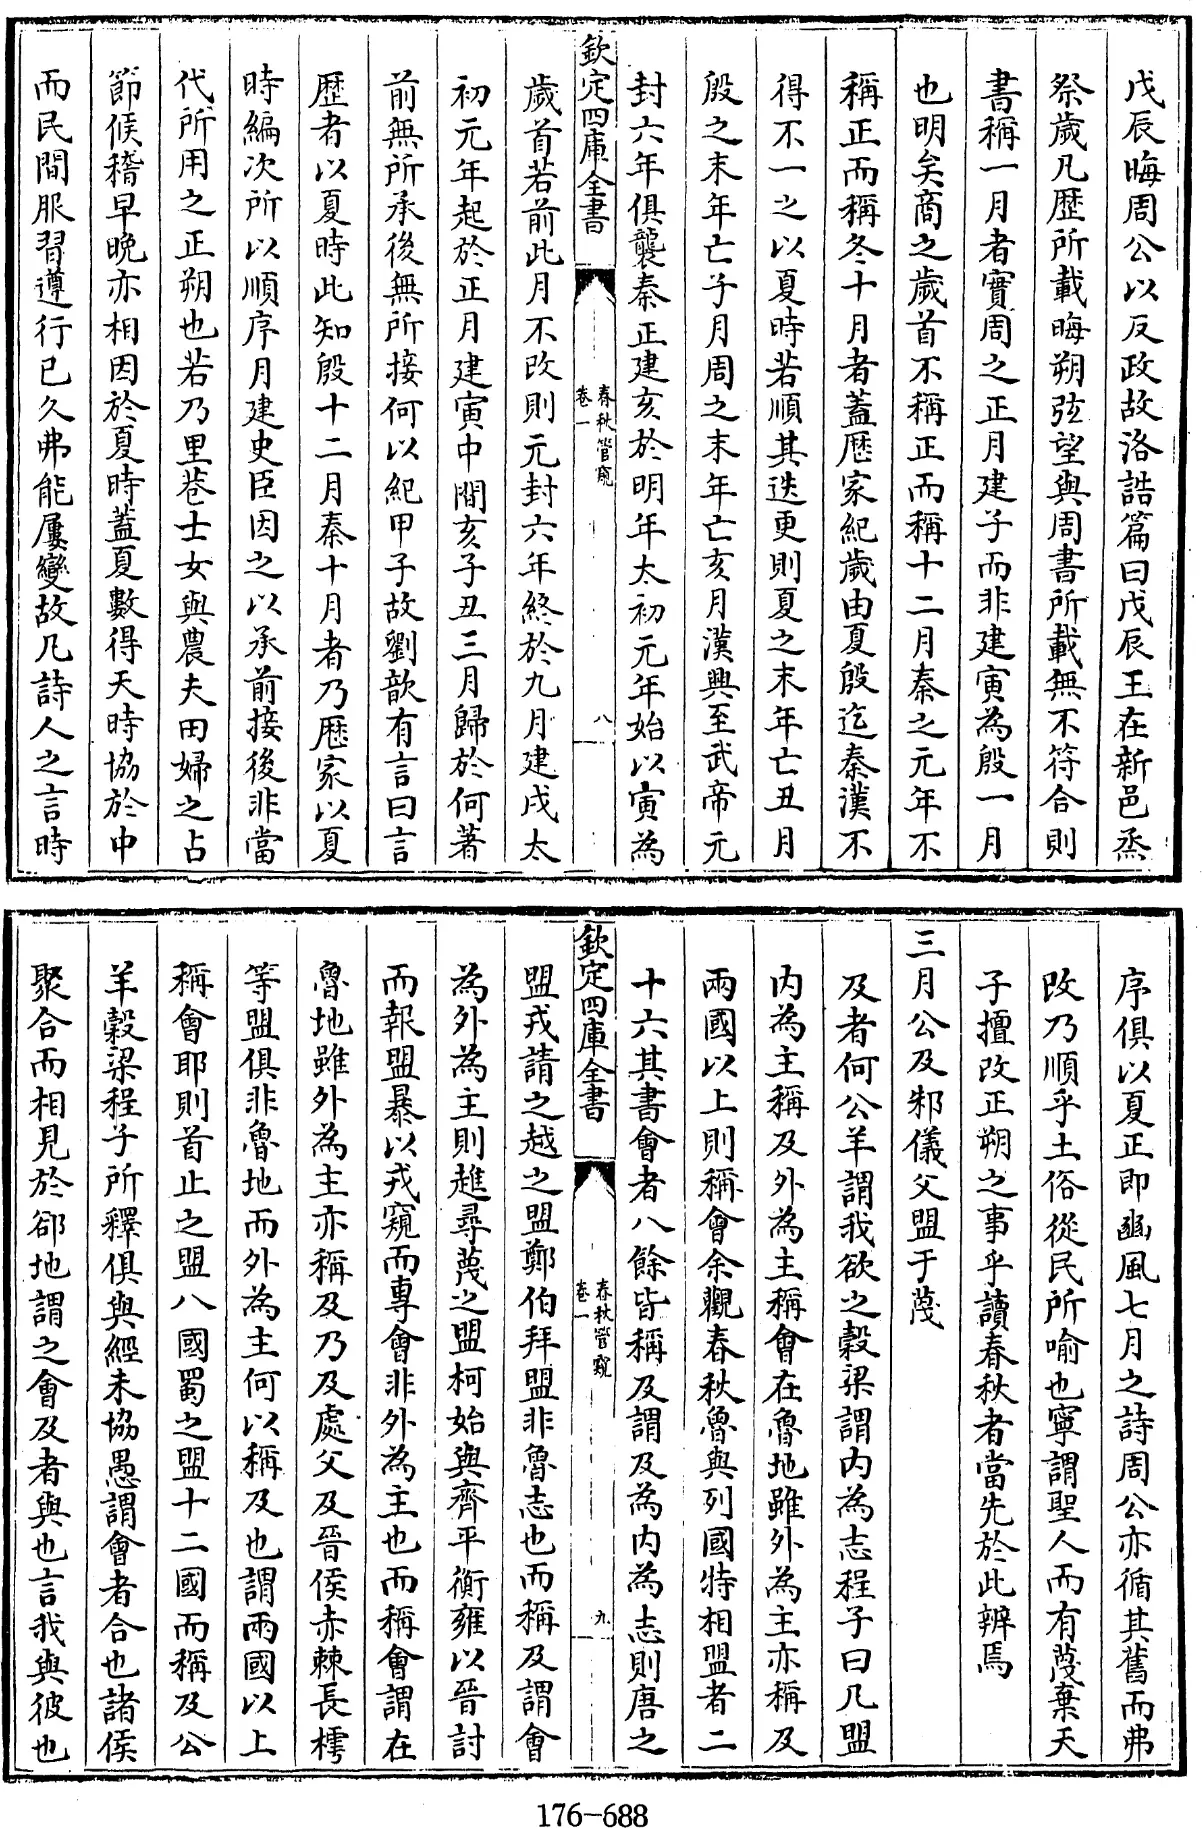 戊辰晦周公以反政故洛誥篇曰戊辰王在新邑烝
祭歲凡歴所載晦朔弦望與周書所載無不符合則
書稱一月者實周之正月建子而非建寅為殷一月
也明矣商之歲首不稱正而稱十二月秦之元年不
稱正而稱冬十月者蓋歴家紀歲由夏殷迄秦漢不
得不一之以夏時若順其迭更則夏之末年亡丑月
殷之末年亡子月周之末年亡亥月漢興至武帝元
封六年俱襲秦正建亥於明年太初元年始以寅為
欽定四庫全書
春秋管窺
卷一
八
歲首若前此月不改則元封六年終於九月建戌太
初元年起於正月建寅中間亥子丑三月歸於何著
前無所承後無所接何以紀甲子故劉歆有言曰言
歴者以夏時此知殷十二月秦十月者乃歴家以夏
時編次所以順序月建史臣因之以承前接後非當
代所用之正朔也若乃里巷士女與農夫田婦之占
節候稽早晚亦相因於夏時蓋夏數得天時協於中
而民間服習遵行已久弗能屢變故凡詩人之言時
序俱以夏正即豳風七月之詩周公亦循其舊而弗
改乃順乎土俗從民所喻也寧謂聖人而有蔑棄天
子擅改正朔之事乎讀春秋者當先於此辨焉
三月公及邾儀父盟于蔑
及者何公羊謂我欲之穀梁謂内為志程子曰凡盟
内為主稱及外為主稱會在魯地雖外為主亦稱及
兩國以上則稱會余觀春秋魯與列國特相盟者二
十六其書會者八餘皆稱及謂及為内為志則唐之
欽定四庫全書
春秋管窺
卷一
九
盟戎請之越之盟鄭伯拜盟非魯志也而稱及謂會
為外為主則趡尋蔑之盟柯始與齊平衡雍以晉討
而報盟暴以戎窺而專會非外為主也而稱會謂在
魯地雖外為主亦稱及乃及處父及晉侯赤棘長樗
等盟俱非魯地而外為主何以稱及也謂兩國以上
稱會耶則首止之盟八國蜀之盟十二國而稱及公
羊穀梁程子所釋俱與經未協愚謂會者合也諸侯
聚合而相見於郤地謂之會及者與也言我與彼也
176-688